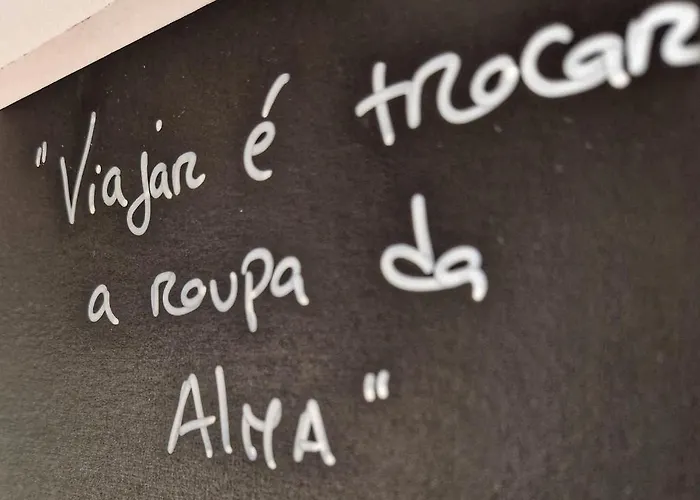 "Viajar é trocar
a roupa da
Alma"